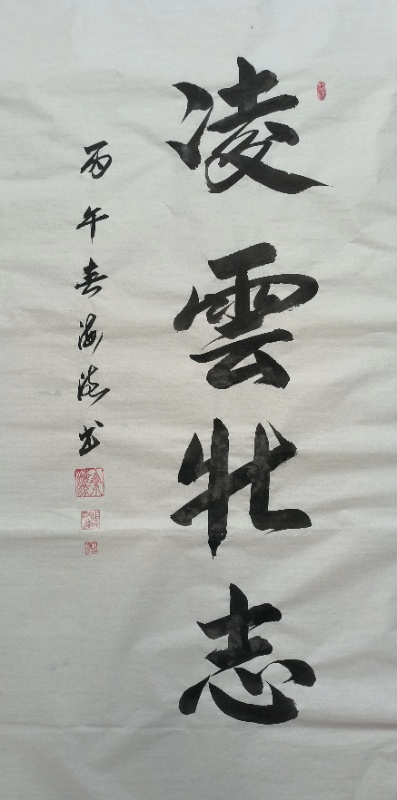 凌雲壮志
丙午春海德书